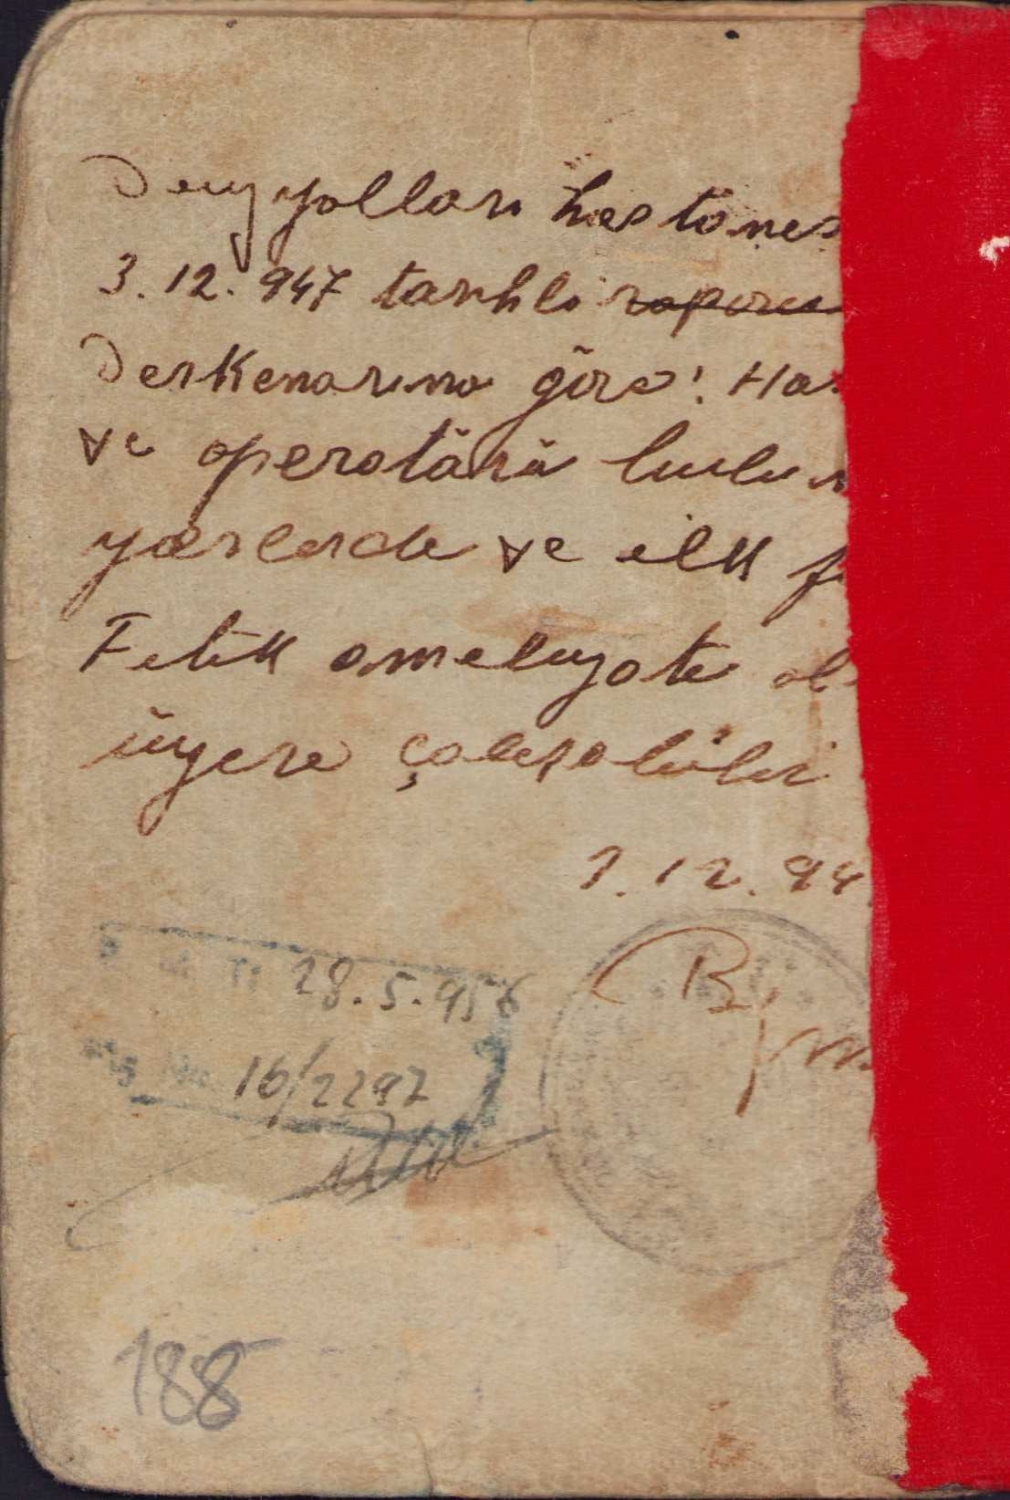 Denizyolları hastanes
3.12.947 tarihli raporu
Derkenarına göre! Has
ve operatörü bulun
yerlerde ve ilk f
Fıtık ameliyatı ol
üzere çalışabilir
3.12.94
28.5.956
16/2292
188